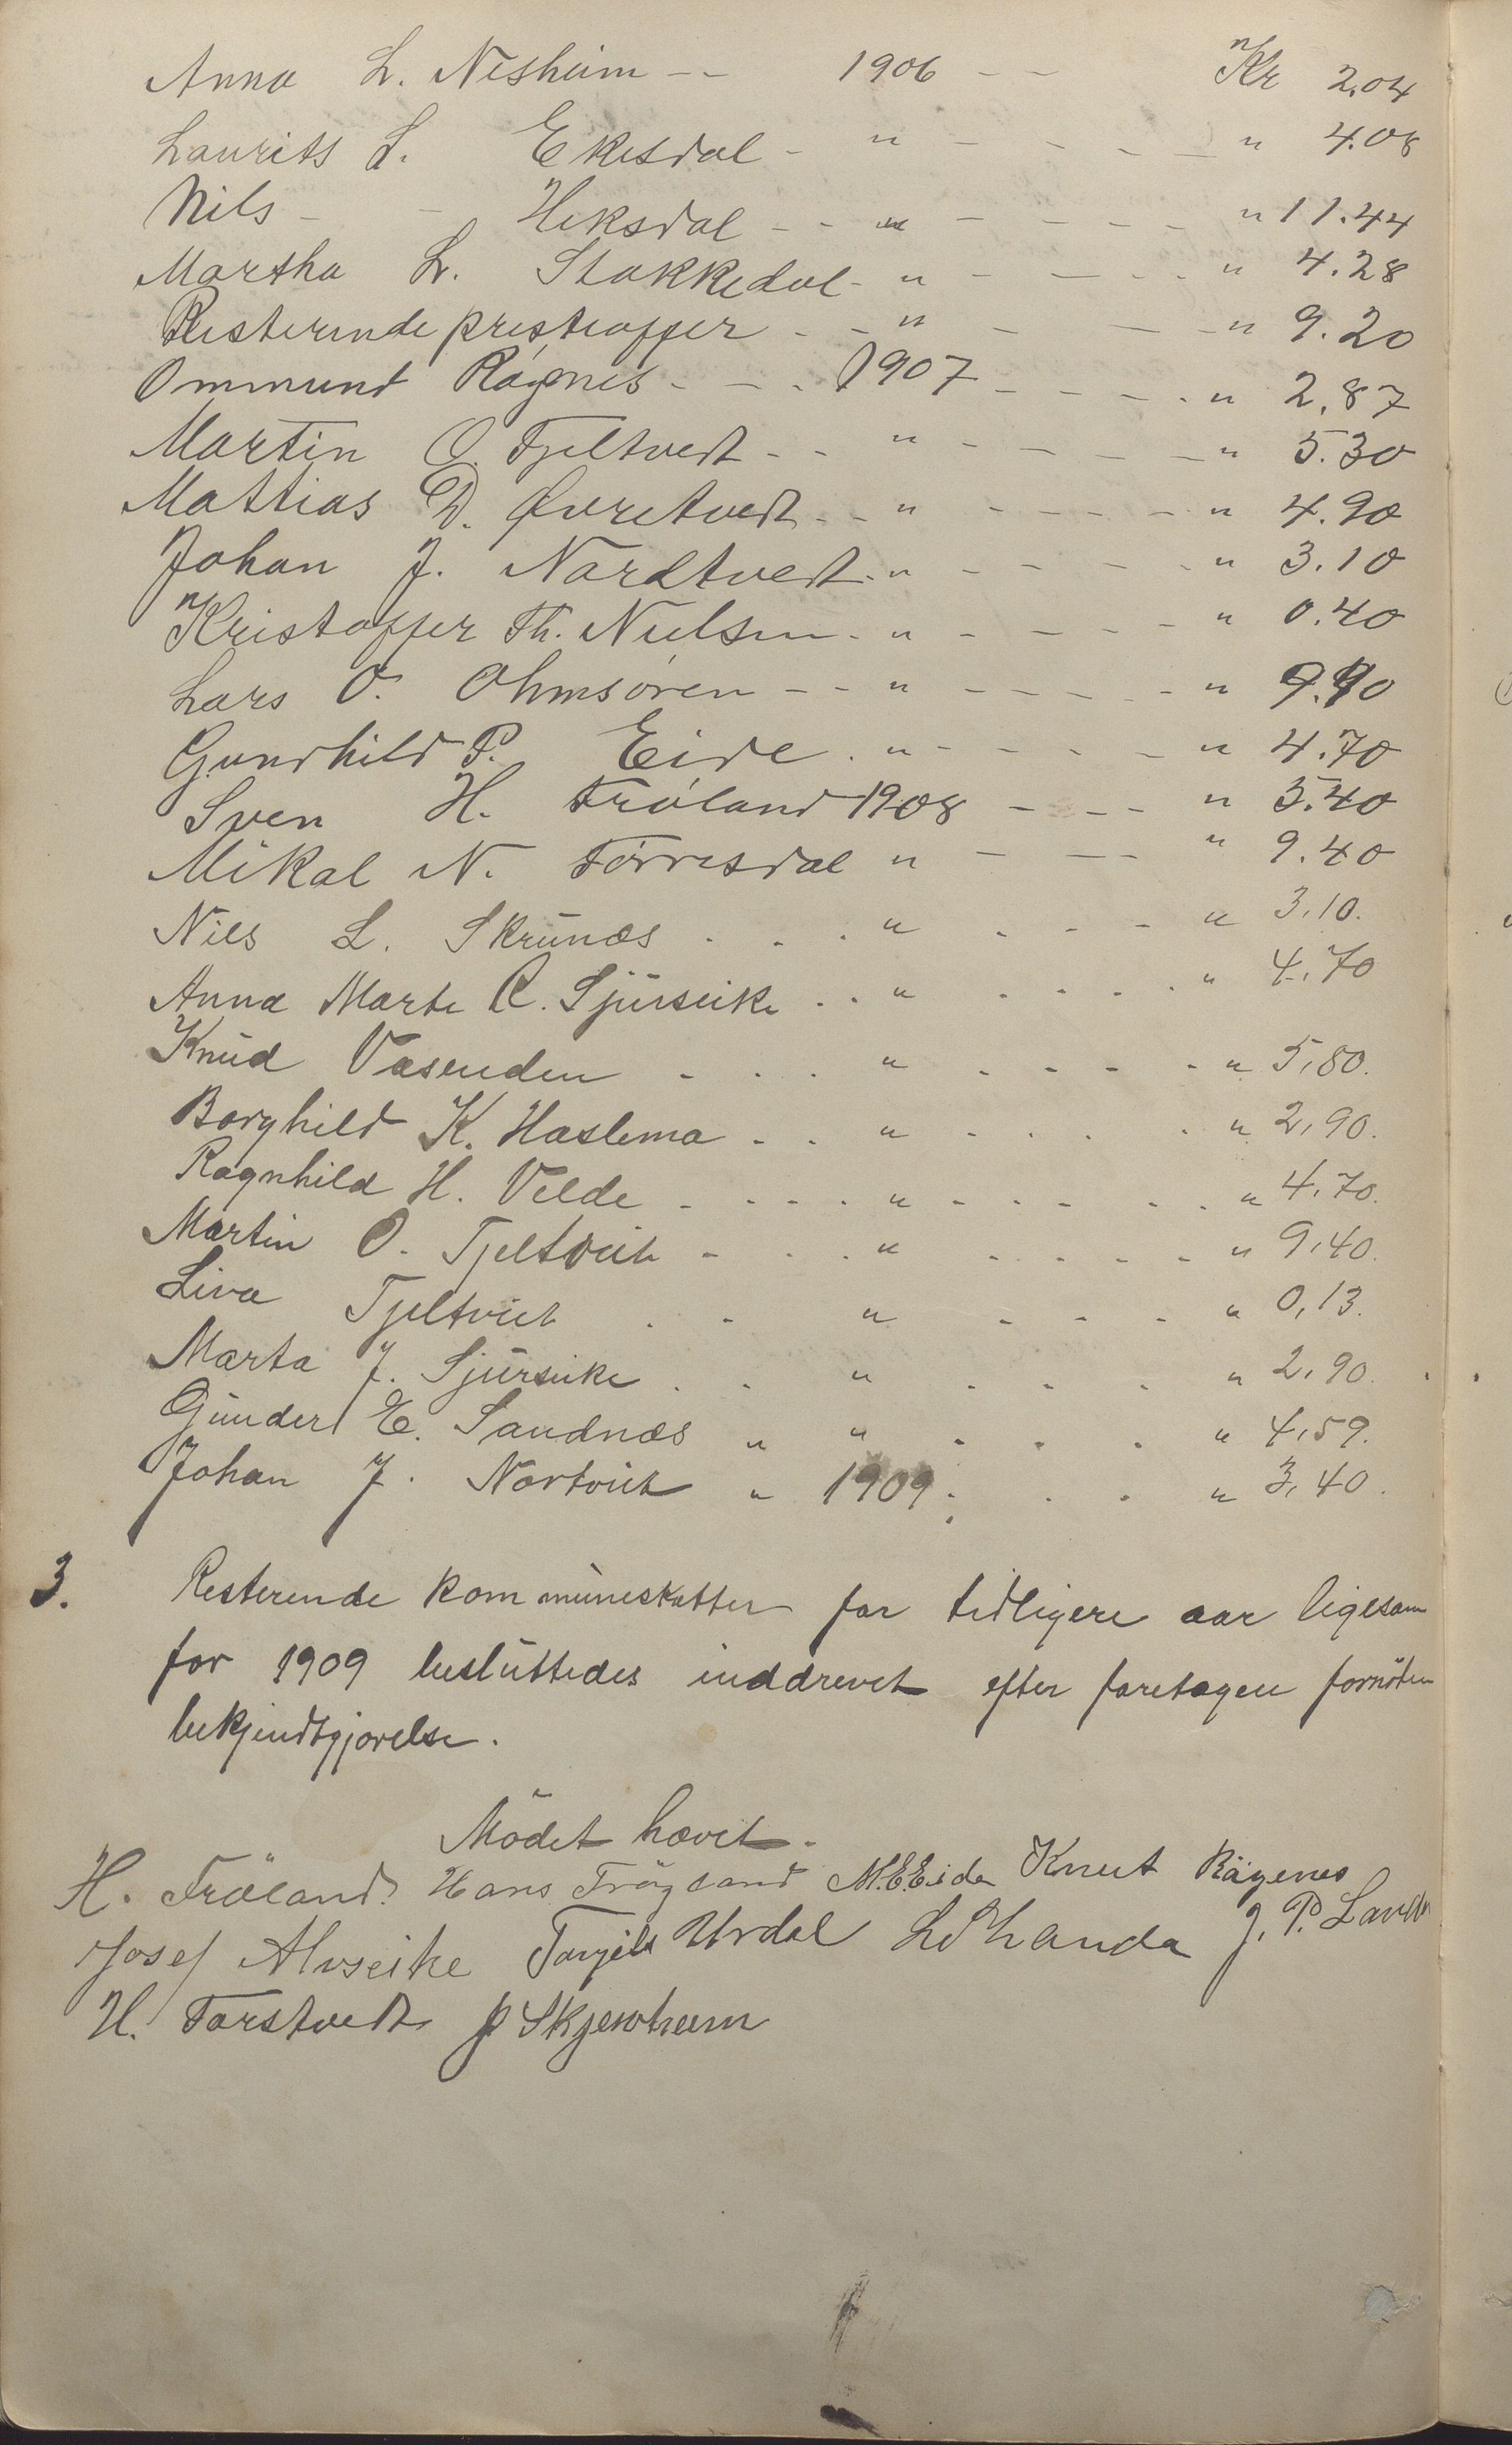 Anna L. Nesheim -- 1906 -- Kr 2.04
Laurits L. Ekesdal - " - - - - " 4.08
Nils - - Heksdal - - " - - - - " 11.44
Martha L. Stakkedal - " - - - " 4.28
Resterende presteoffer - - " - - - " 9.20
Ommund Rágnes - - - 1907 - - - - " 2.87
Martin O. Tjeltvedt - - " - - - - " 5.30
Mattias D. Øvretvedt - - " - - - - " 4.90
Johan J. Nordtvedt - " - - - - " 3.10
Kristoffer Th. Nielsen - " - - - - " 0.40
Lars O. Ohmsoren - - - " - - - - " 9.90
Gundhild P. Eide . " - - - - " 4.70
Sven H. Fróland 1908 - - - " 3.40
Mikal N. Tórresdal " - - - " 9.40
Nils L. Skrunæs . . . " . - - - " 3,10.
Anna Marta R. Sjurseike . . " . . . . " 4,70
Knud Vasenden - . . " . . - - " 5,80.
Borghild K. Haslema . . " . . . . " 2,90.
Ragnhild H. Velde - . - - . " - - - . . " 4,70.
Martin O. Tjeltveit - . . " . . . - - " 9,40.
Liva Tjeltveit . - " - - - " 0,13.
Marta J. Sjurseike . . " . . . " 2,90.
Gunder E. Sandnæs " " . . . " 4,59.
Johan J. Nortveit " 1909. . . " 3,40.
3. Resterende kommuneskatter for tidligere aar ligesom
for 1909 besluttedes inddrevet efter foretagen fornöten
bekjendtgjorelse.
Mödet hævet.
H. Fröland. Hans Frögland M.E.Eide Knut Rägenes
Josef Alvseike Torgils Urdal L Landa J. P. Landa
H. Torstvedt P Skjenheim